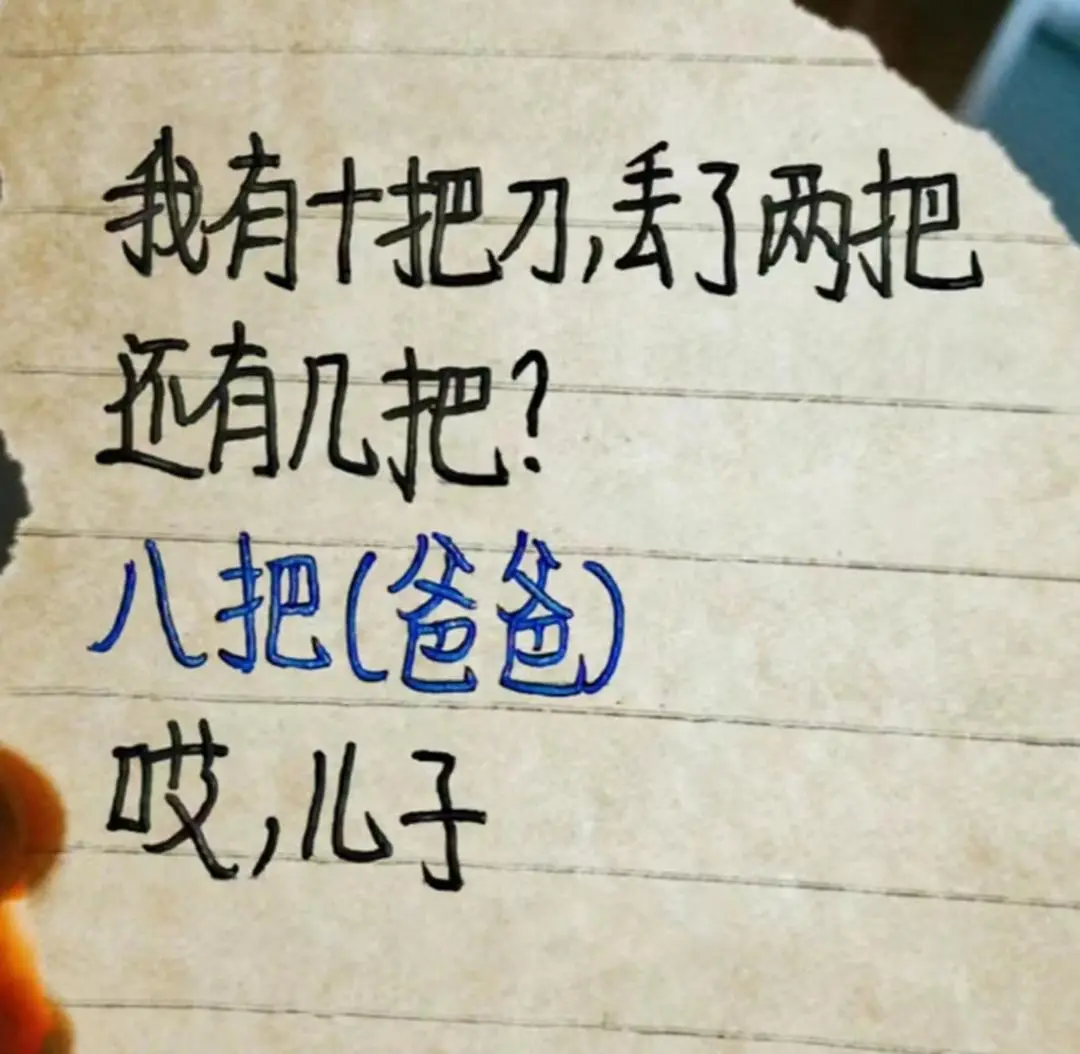 我有十把刀,丢了两把
还有几把?
八把(爸爸)
哎,儿子